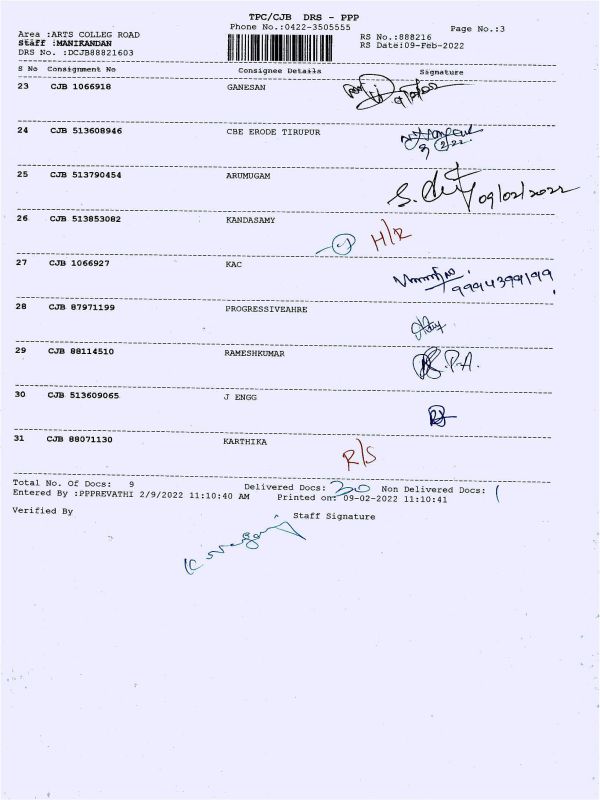 TPC/CJB DRS - PPP
Phone No.:0422-3505555
Page No.:3
Area :ARTS COLLEG ROAD
RS No.:888216
Staff :MANIKANDAN
RS Date:09-Feb-2022
DRS No. :DCJB88821603
S No Consignment No Consignee Details Signature
23 CJB 1066918 GANESAN
24 CJB 513608946 CBE ERODE TIRUPUR
25 CJB 513790454 ARUMUGAM 09/02/2022
26 CJB 513853082 KANDASAMY H/R
27 CJB 1066927 KAC
9994399199
28 CJB 87971199 PROGRESSIVEAHRE
29 CJB 88114510 RAMESHKUMAR
30 CJB 513609065 J ENGG
31 CJB 88071130 KARTHIKA R/S
Total No. Of Docs: 9 Delivered Docs: 30 Non Delivered Docs: 1
Entered By :PPPREVATHI 2/9/2022 11:10:40 AM Printed on: 09-02-2022 11:10:41
Verified By Staff Signature